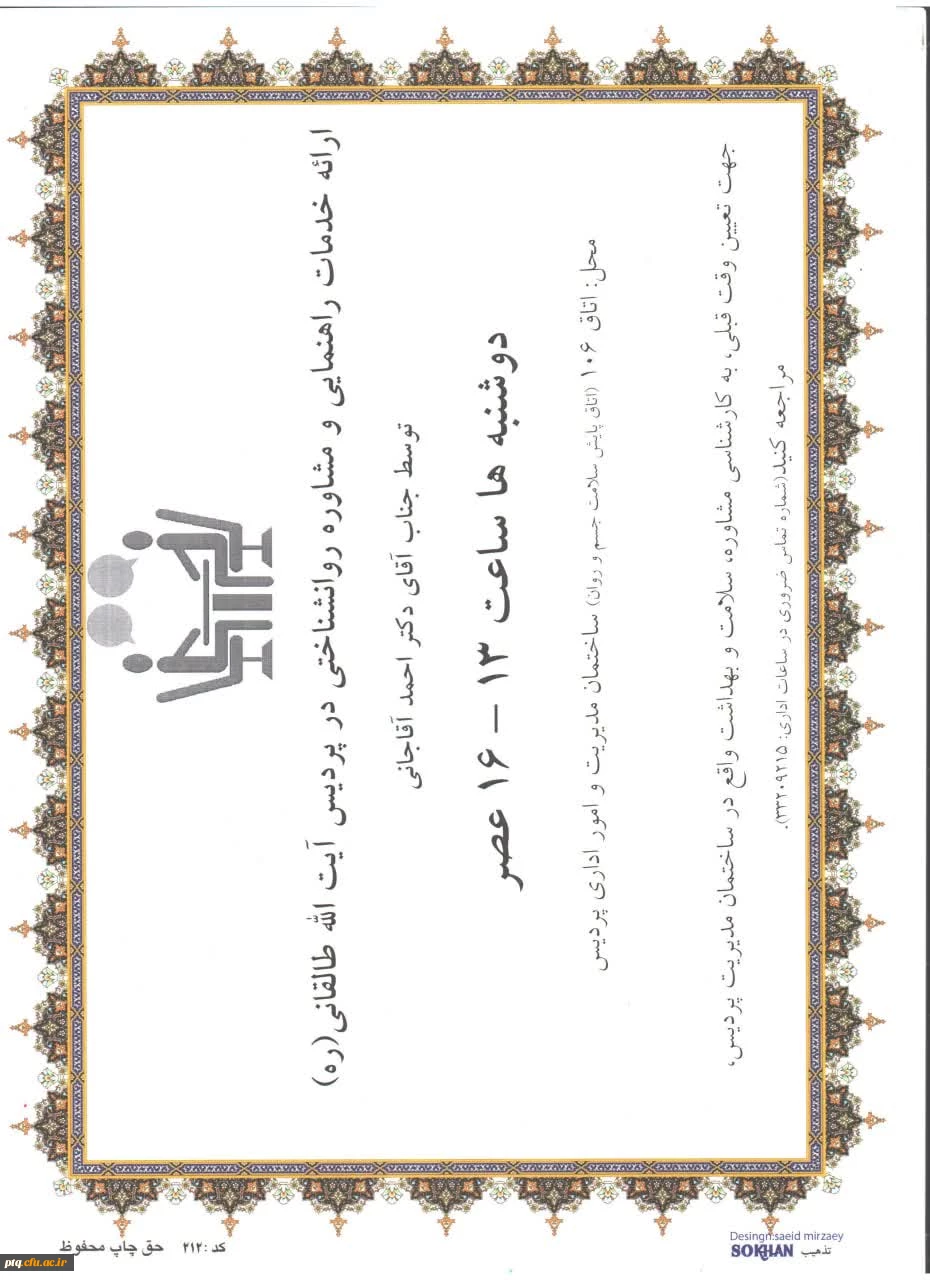 ارائه خدمات راهنمایی و مشاوره روانشناختی در پردیس آیت الله طالقانی(ره)
توسط جناب آقای دکتر احمد آقاجانی
دوشنبه ها ساعت ۱۳ – ۱۶ عصر
محل: اتاق ۱۰۶ (اتاق پایش سلامت جسم و روان) ساختمان مدیریت و امور اداری پردیس
جهت تعیین وقت قبلی، به کارشناسی مشاوره، سلامت و بهداشت واقع در ساختمان مدیریت پردیس،
مراجعه کنید(شماره تماس ضروری در ساعات اداری: ۳۳۲۰۹۲۱۵).
کد :۲۱۲ حق چاپ محفوظ
Desingn:saeid mirzaey
SOKHAN تذهیب
ptq.cfu.ac.ir